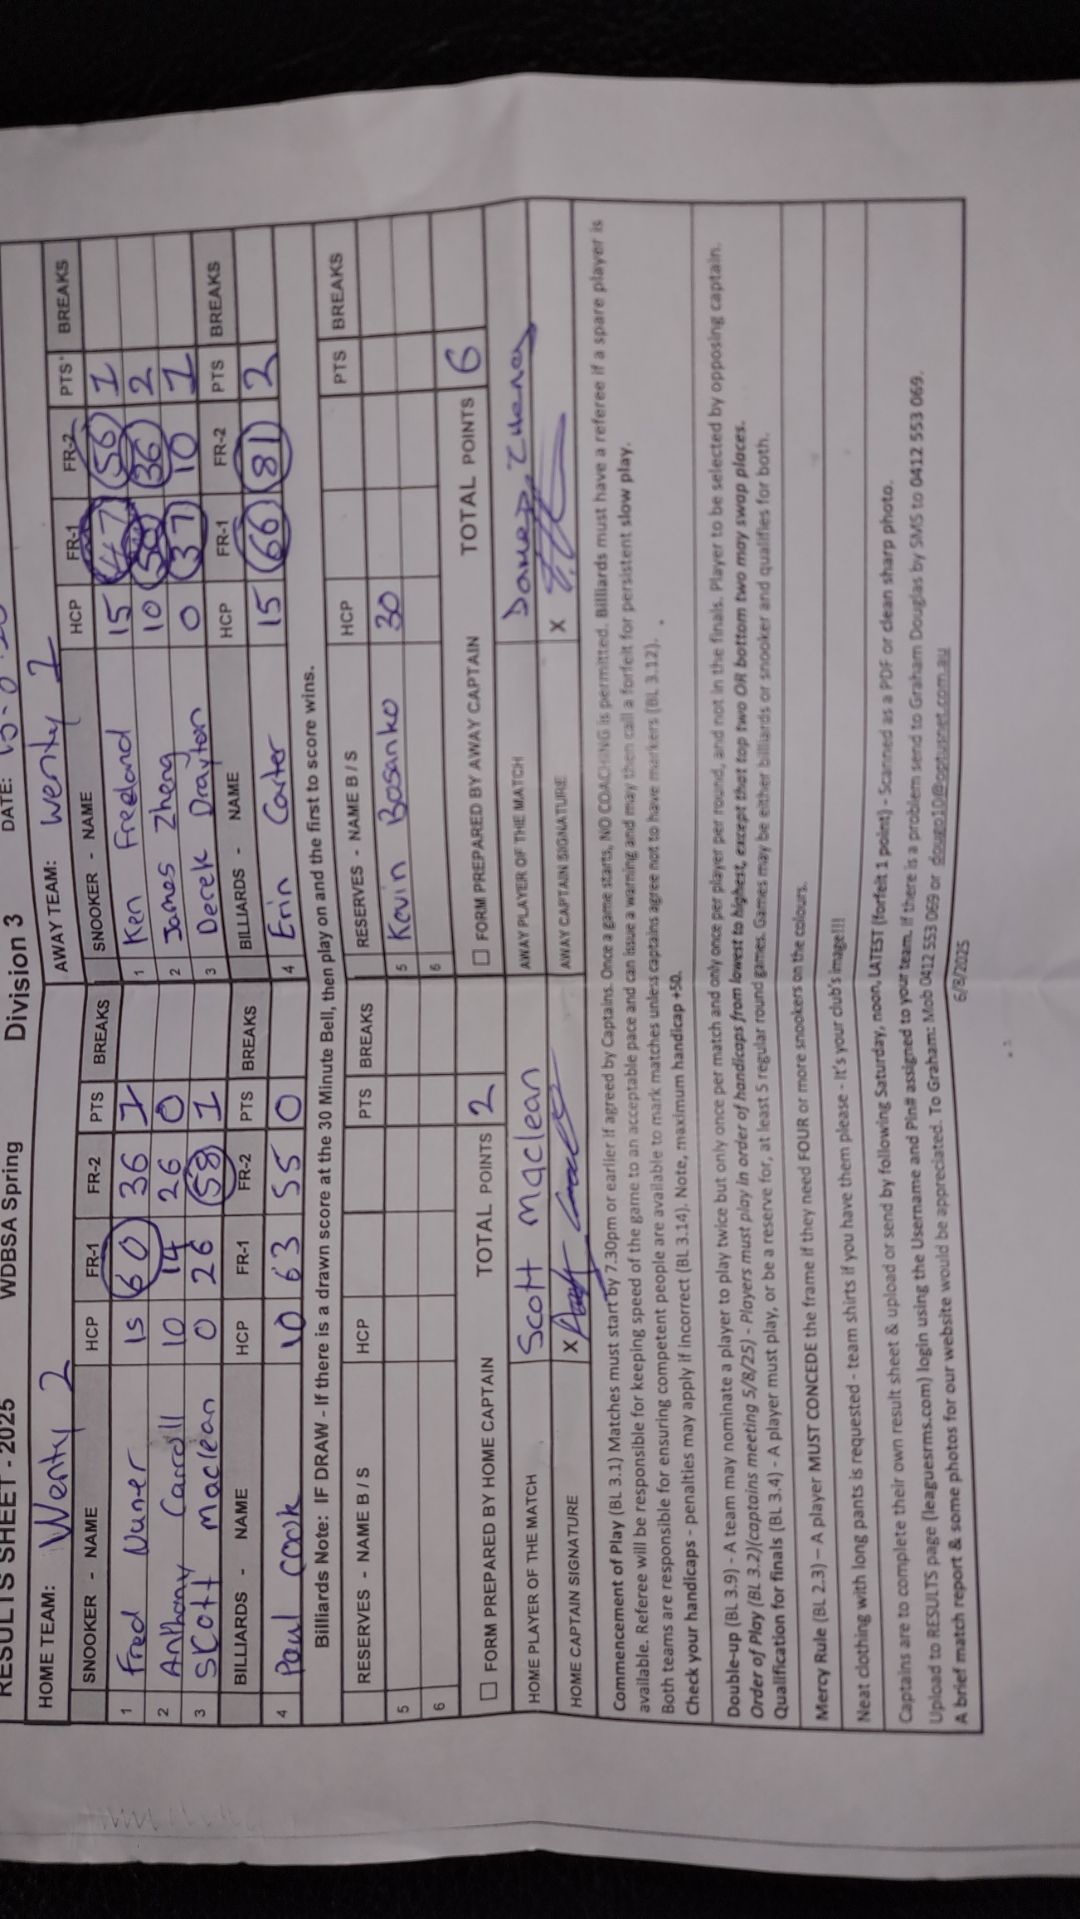 RESULTS SHEET - 2025 WDBSA Spring Division 3 DATE:
HOME TEAM: Wenty 2 AWAY TEAM: Wenty 1
SNOOKER - NAME HCP FR-1 FR-2 PTS BREAKS SNOOKER - NAME HCP FR-1 FR-2 PTS BREAKS
1 Fred Nuner 15 60 36 1 1 Ken Freeland 15 47 56 1
2 Anthony Carroll 10 14 26 0 2 James Zheng 10 50 36 2
3 Scott Maclean 0 26 58 1 3 Derek Drayton 0 37 10 1
BILLIARDS - NAME HCP FR-1 FR-2 PTS BREAKS BILLIARDS - NAME HCP FR-1 FR-2 PTS BREAKS
4 Paul Cook 10 63 55 0 4 Erin Carter 15 66 81 2
Billiards Note: IF DRAW - If there is a drawn score at the 30 Minute Bell, then play on and the first to score wins.
RESERVES - NAME B / S HCP PTS BREAKS RESERVES - NAME B / S HCP PTS BREAKS
5 5 Kevin Bosanko 30
6 6
FORM PREPARED BY HOME CAPTAIN TOTAL POINTS 2 FORM PREPARED BY AWAY CAPTAIN TOTAL POINTS 6
HOME PLAYER OF THE MATCH Scott Maclean AWAY PLAYER OF THE MATCH James Zheng
HOME CAPTAIN SIGNATURE X AWAY CAPTAIN SIGNATURE X
Commencement of Play (BL 3.1) Matches must start by 7.30pm or earlier if agreed by Captains. Once a game starts, NO COACHING is permitted. Billiards must have a referee if a spare player is
available. Referee will be responsible for keeping speed of the game to an acceptable pace and can issue a warning and may then call a forfeit for persistent slow play.
Both teams are responsible for ensuring competent people are available to mark matches unless captains agree not to have markers (BL 3.12).
Check your handicaps - penalties may apply if incorrect (BL 3.14). Note, maximum handicap +50.
Double-up (BL 3.9) - A team may nominate a player to play twice but only once per match and only once per player per round, and not in the finals. Player to be selected by opposing captain.
Order of Play (BL 3.2)(captains meeting 5/8/25) - Players must play in order of handicaps from lowest to highest, except that top two OR bottom two may swap places.
Qualification for finals (BL 3.4) - A player must play, or be a reserve for, at least 5 regular round games. Games may be either billiards or snooker and qualifies for both.
Mercy Rule (BL 2.3) – A player MUST CONCEDE the frame if they need FOUR or more snookers on the colours.
Neat clothing with long pants is requested - team shirts if you have them please - it's your club's image!!!
Captains are to complete their own result sheet & upload or send by following Saturday, noon, LATEST (forfeit 1 point) - Scanned as a PDF or clean sharp photo.
Upload to RESULTS page (leaguesrms.com) login using the Username and Pin# assigned to your team. If there is a problem send to Graham Douglas by SMS to 0412 553 069.
A brief match report & some photos for our website would be appreciated. To Graham: Mob 0412 553 069 or dougo10@optusnet.com.au
6/8/2025